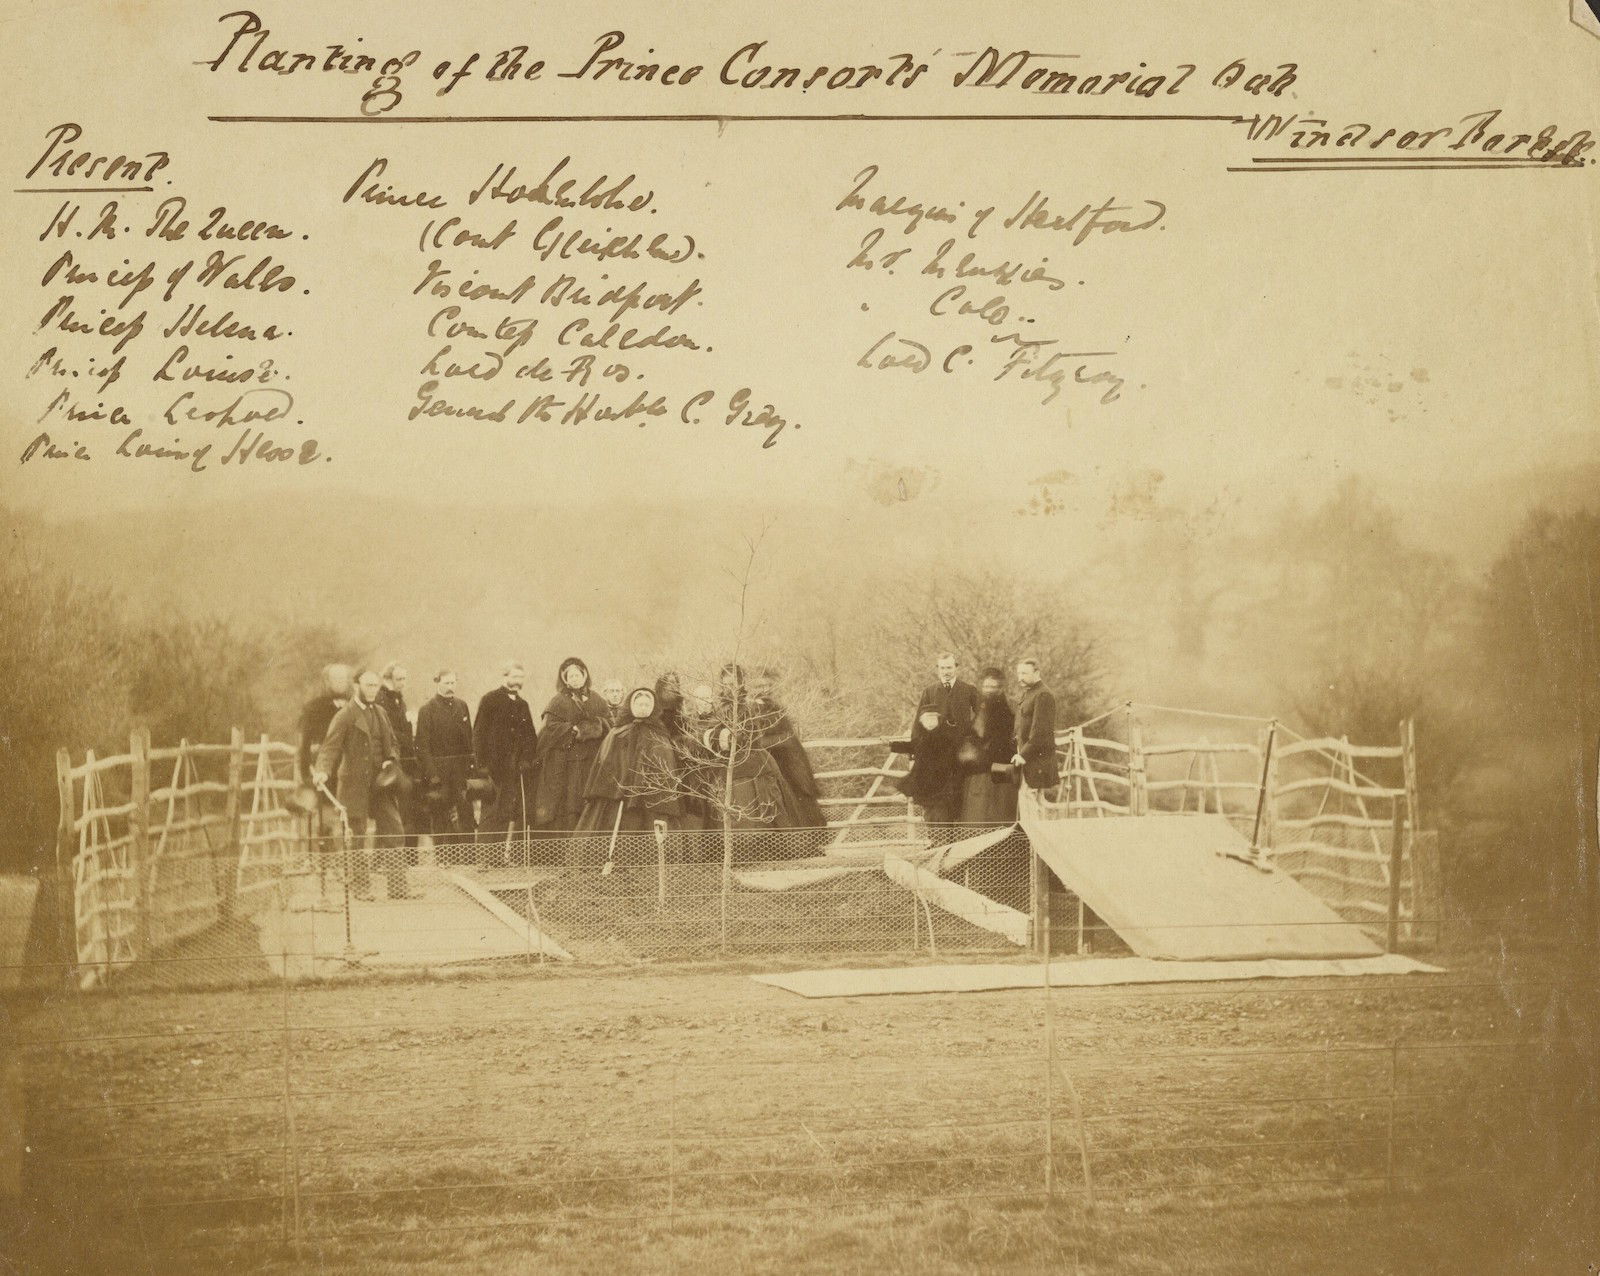 Planting of the Prince Consort's Memorial Oak
Windsor Forest.
Present.
H. M. The Queen.
Princess of Wales.
Princess Helena.
Princess Louise.
Prince Leopold.
Prince Louis of Hesse.
Prince Hohenlohe.
(Count Gleichen).
Viscount Bridport.
Comtess Caledon.
Lord de Ros.
General the Honble C. Grey.
Marquis of Hertford.
Mr. Menzies.
" Cole..
Lord C. Fitzroy.